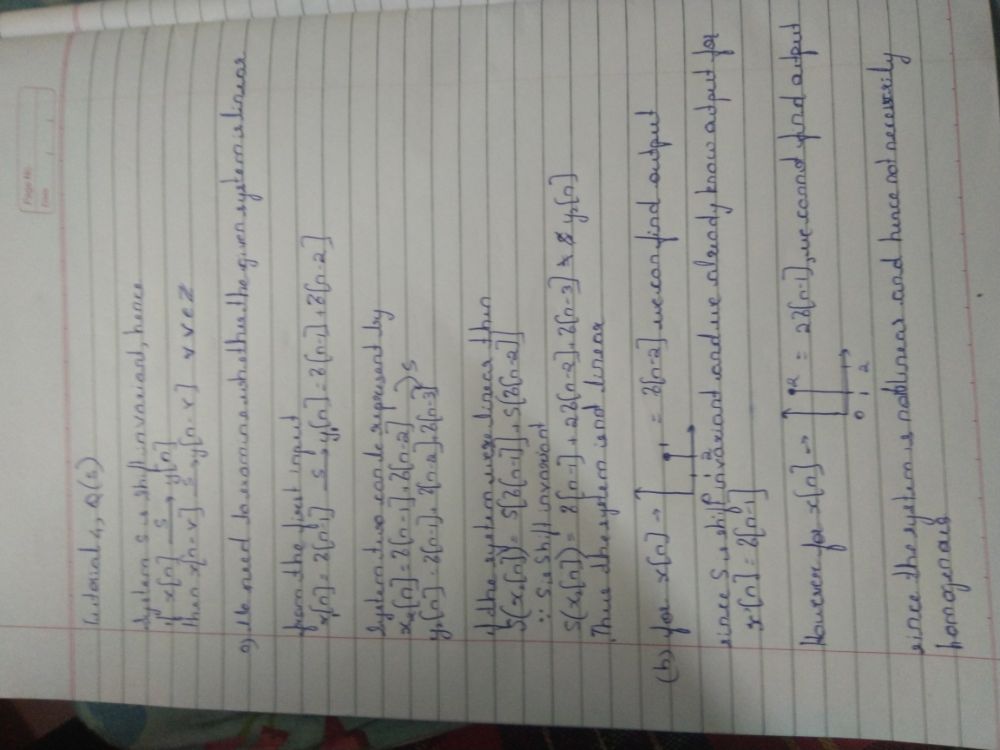 Page No.
Date
Tutorial 4, Q(5)
System S is shift invariant, hence
if x[n] S→ y[n]
then x[n-v] S→ y[n-v] ∀ v∈Z
a) We need to examine whether the given system is linear
from the first input
x₁[n] = δ[n-1] S→ y₁[n] = δ[n-1] + δ[n-2]
System two can be represent by
x₂[n] = δ[n-1] + δ[n-2]
y₂[n] = δ[n-1] + δ[n-2] + δ[n-3] S
if the system were linear then
S(x₂[n]) = S[δ[n-1]] + S[δ[n-2]]
∵ S is shift invariant
S(x₂[n]) = δ[n-1] + 2δ[n-2] + δ[n-3] ≠ y₂[n]
Thus the system is not linear
(b) for x[n] → 1 2 = δ[n-2] we can find output
since S is shift invariant and we already know output for
x[n] = δ[n-1]
However for x[n] → 2 0 1 2 = 2δ[n-1], we cannot find output
since the system is not linear and hence not necessarily
homogenous